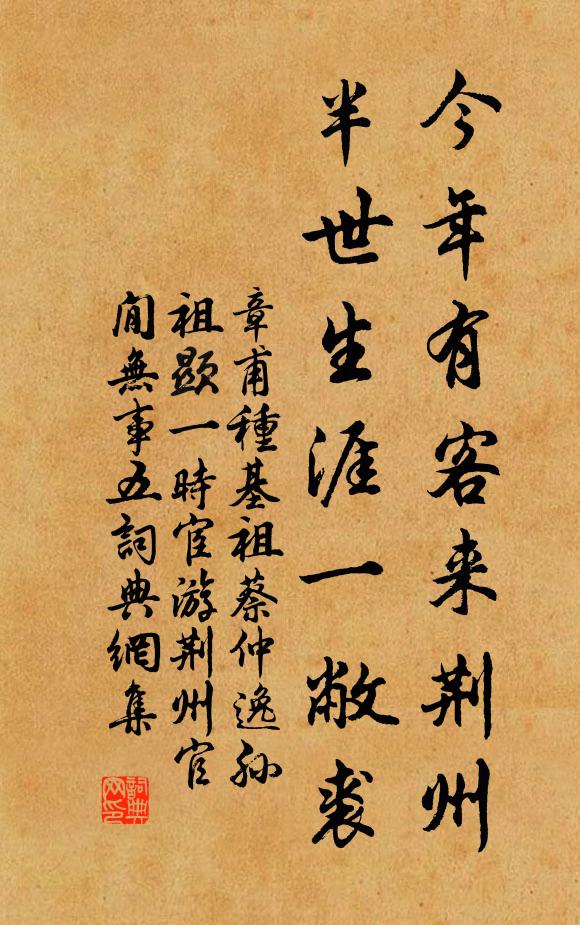 今年有客来荆州
半世生涯一敝裘
章甫種基祖蔡仲逸孙
祖顕一時宦游荆州官
閒無事五詞典網集
詞典
网印